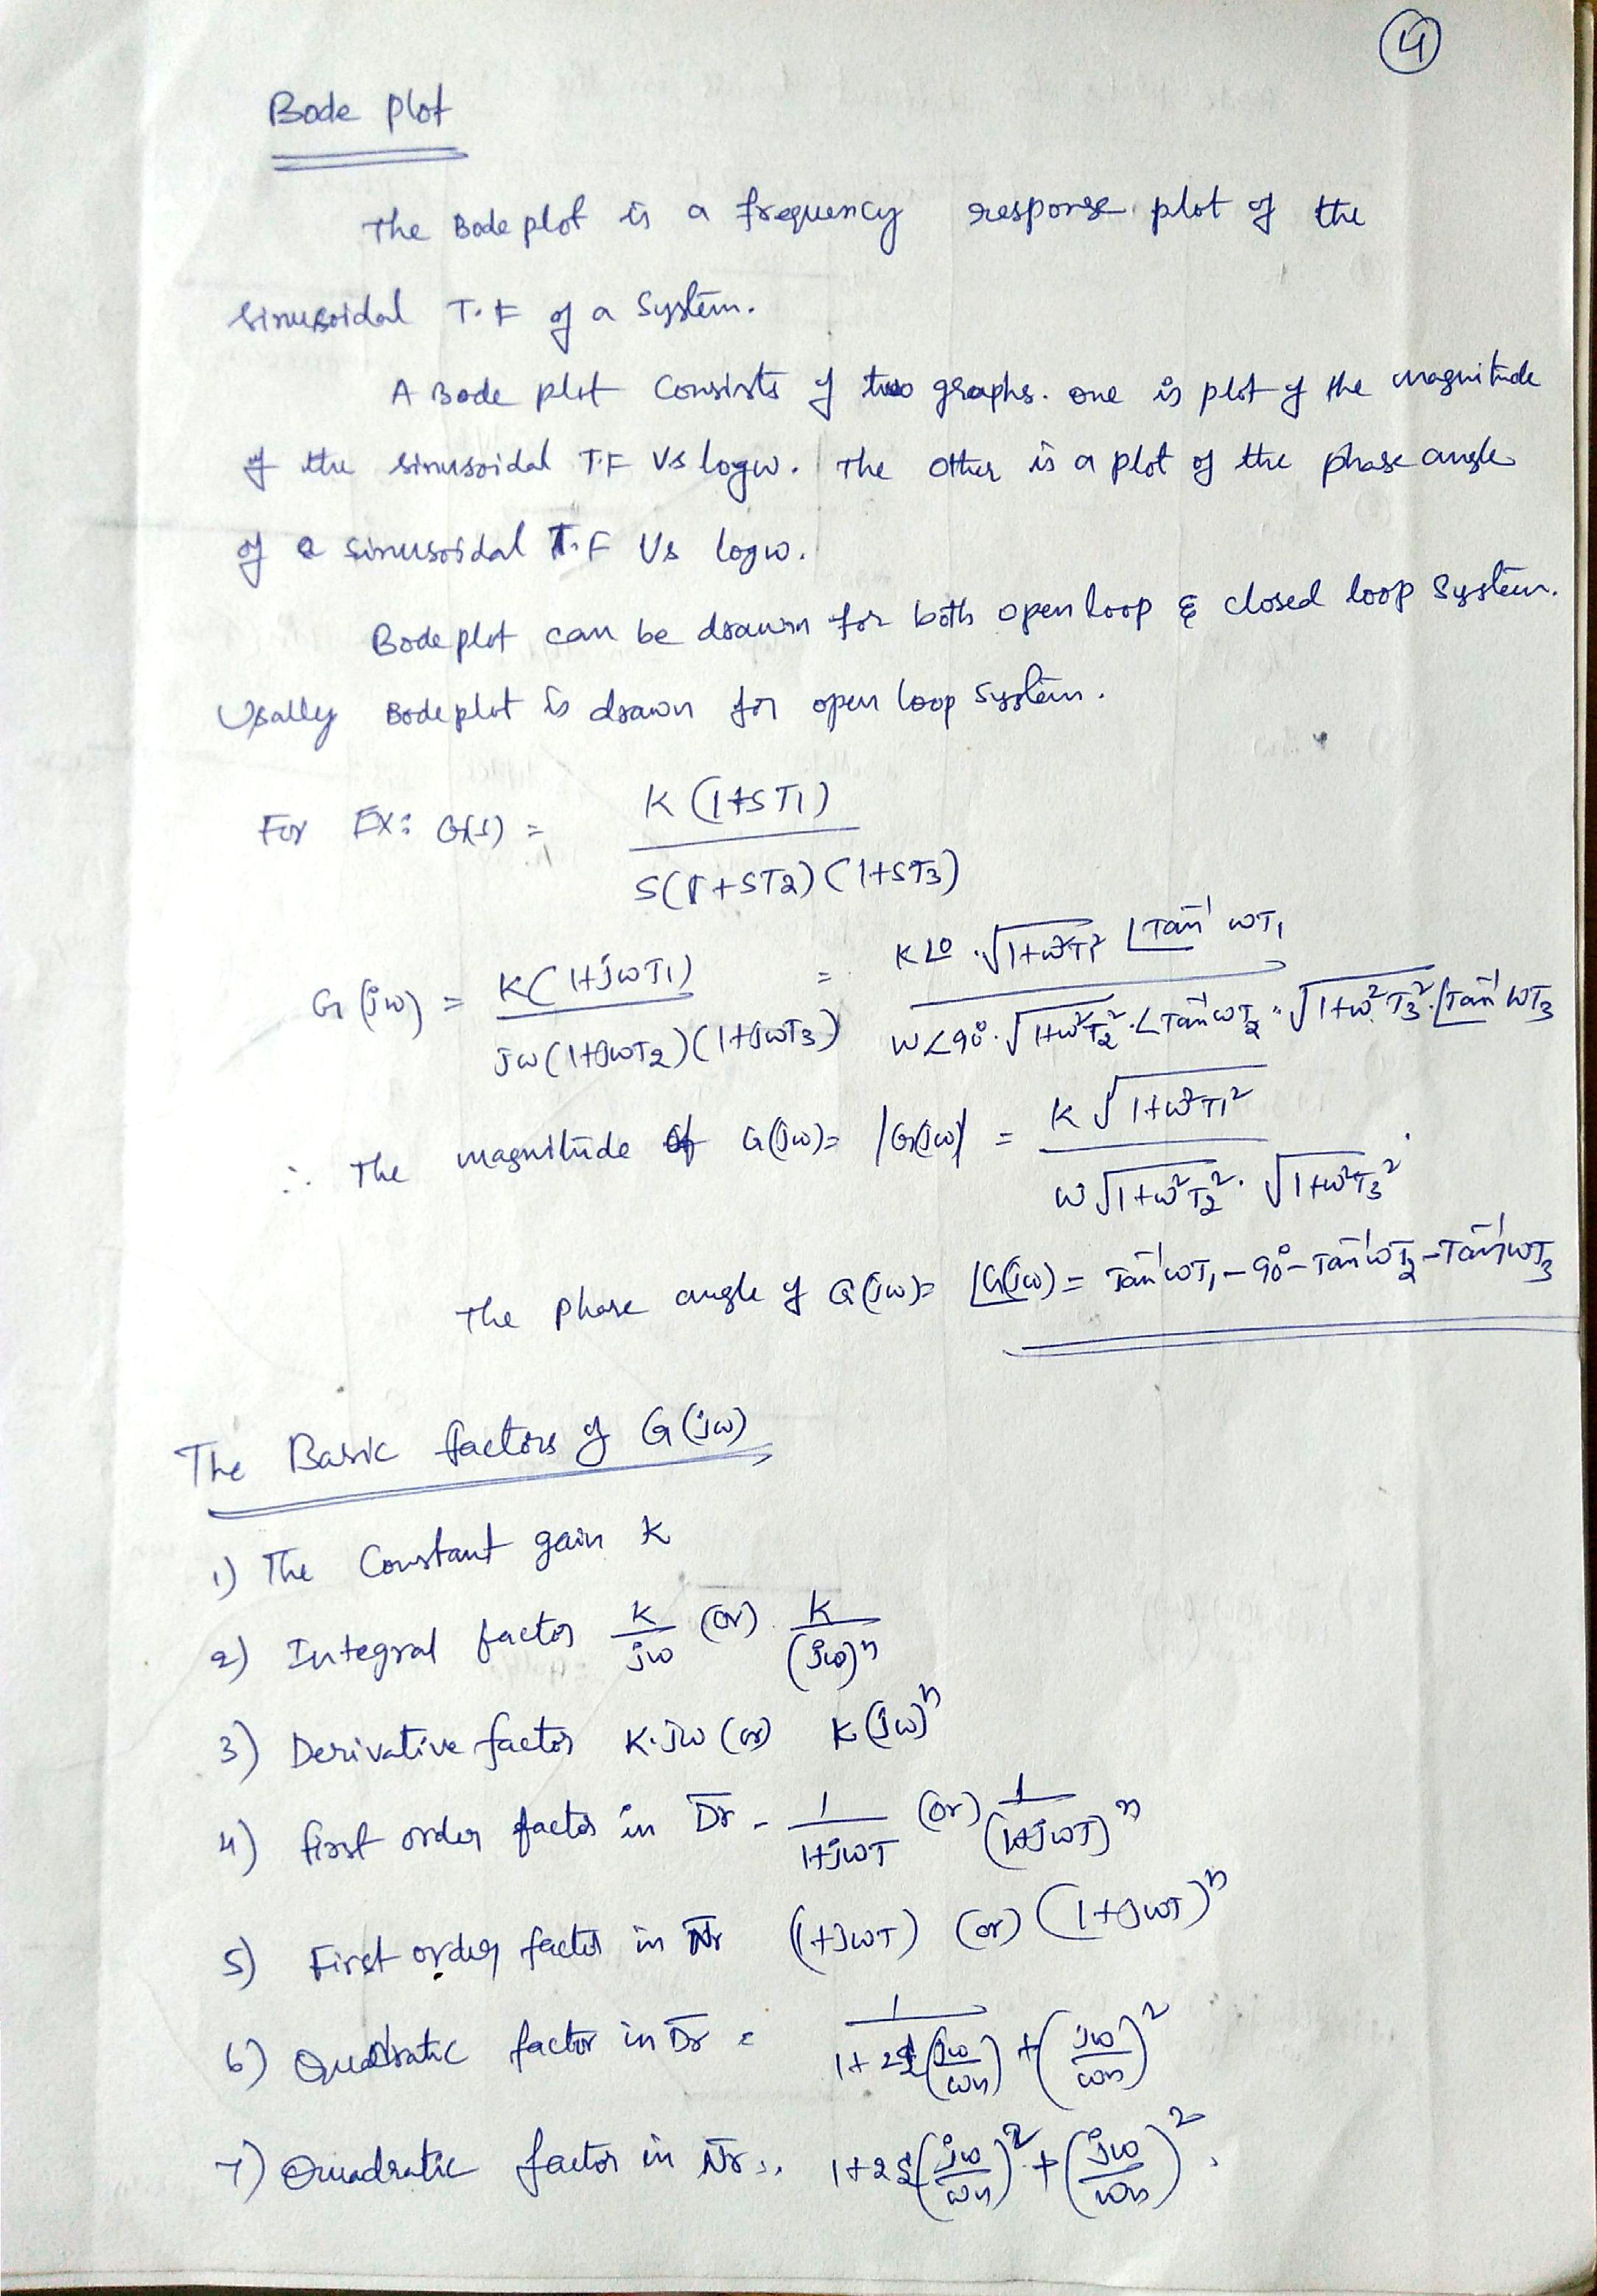 4
Bode Plot
The Bode plot is a frequency response plot of the
Sinusoidal T.F of a System.
A Bode plot Consists of two graphs. one is plot of the magnitude
of the sinusoidal T.F Vs logω. The other is a plot of the phase angle
of a sinusoidal T.F Vs logω.
Bode plot can be drawn for both open loop & closed loop System.
Usally Bode plot is drawn for open loop System.
For EX: G(s) = K(1+ST1) / S(1+ST2)(1+ST3)
G(jω) = K(1+jωT1) / jω(1+jωT2)(1+jωT3) = K∠0 · √1+ω²T1² ∠Tan⁻¹ ωT1 / ω∠90° · √1+ω²T2² · ∠Tan⁻¹ωT2 · √1+ω²T3² · ∠Tan⁻¹ ωT3
∴ The magnitude of G(jω) = |G(jω)| = K√1+ω²T1² / ω√1+ω²T2² · √1+ω²T3² .
The Phase angle of G(jω) = ∠G(jω) = Tan⁻¹ωT1 – 90° – Tan⁻¹ωT2 – Tan⁻¹ωT3
The Basic factors of G(jω)
1) The Constant gain K
2) Integral factor K/jω (or) K/(jω)ⁿ
3) Derivative factor K.jω (or) K(jω)ⁿ
4) first order factor in Dr - 1/1+jωT (or) 1/(1+jωT)ⁿ
5) First order factor in Nr (1+jωT) (or) (1+jωT)ⁿ
6) Quadratic factor in Dr = 1 / 1+2ξ(jω/ωn) + (jω/ωn)²
7) Quadratic factor in Nr :. 1+2ξ(jω/ωn)² + (jω/ωn)² .